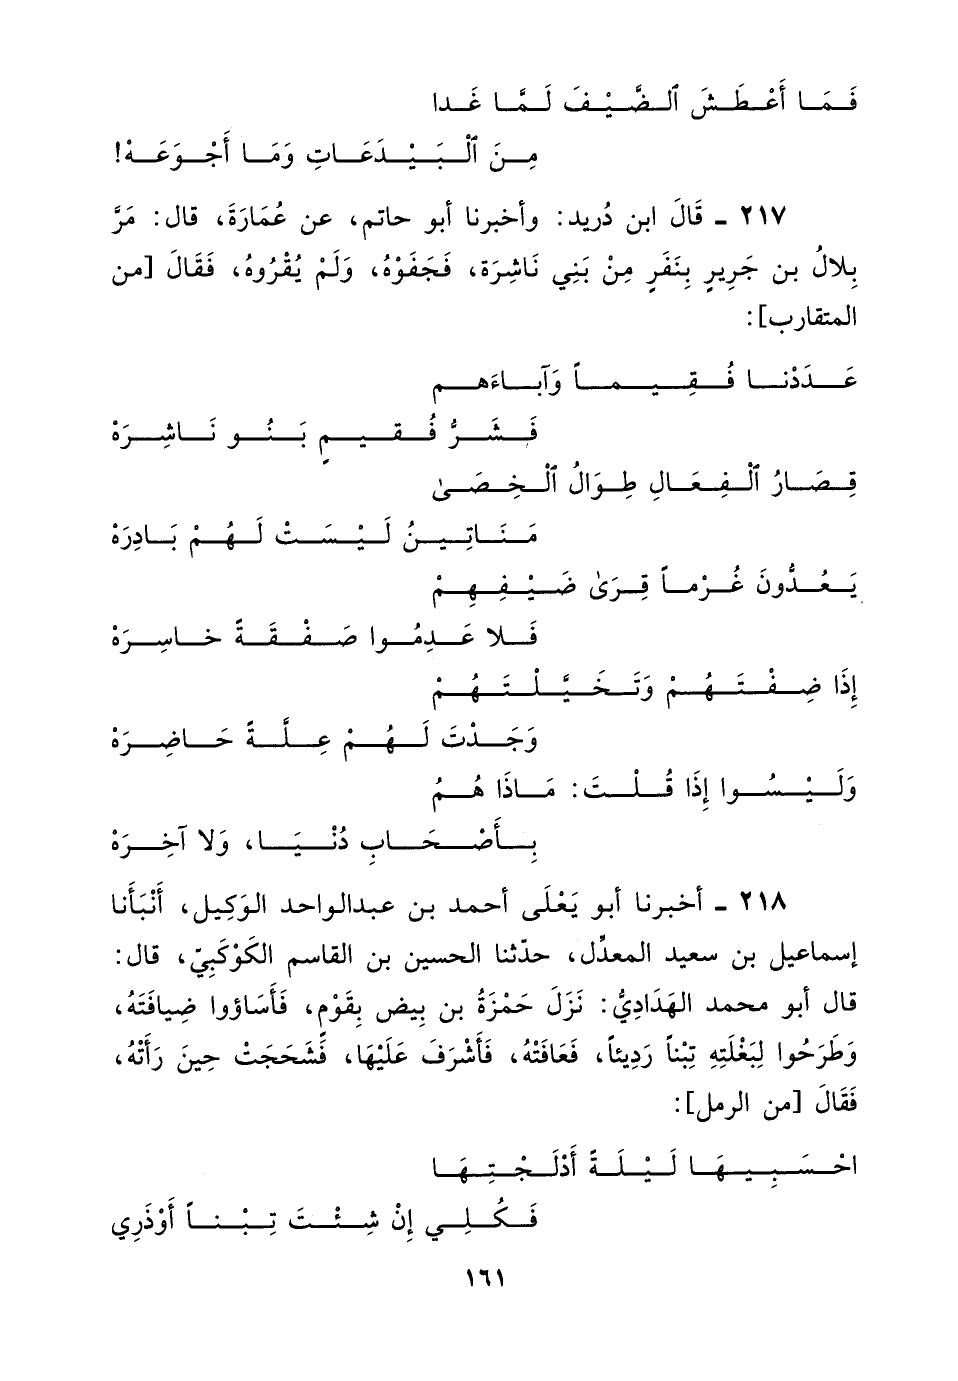 فَمَا أَعْطَشَ ٱلضَّيْفَ لَمَّا غَدا
مِنَ ٱلْبَيْدَعَاتِ وَمَا أَجْوَعَهْ!
٢١٧ ـ قَالَ ابن دُريد: وأخبرنا أبو حاتم، عن عُمَارَةَ، قال: مَرَّ
بِلالُ بن جَرِيرٍ بِنَفَرٍ مِنْ بَنِي نَاشِرَة، فَجَفَوْهُ، وَلَمْ يُقْرُوهُ، فَقَالَ [من
المتقارب]:
عَدَدْنا فُقِيماً وَآباءَهم
فَشَرُّ فُقيمٍ بَنُو نَاشِرَهْ
قِصَارُ ٱلْفِعَالِ طِوَالُ ٱلْخِصَىٰ
مَنَاتِينُ لَيْسَتْ لَهُمْ بَادِرَهْ
يَعُدُّونَ غُرْماً قِرَىٰ ضَيْفِهِمْ
فَلا عَدِمُوا صَفْقَةً خاسِرَهْ
إِذَا ضِفْتَهُمْ وَتَخَيَّلْتَهُمْ
وَجَدْتَ لَهُمْ عِلَّةً حَاضِرَهْ
وَلَيْسُوا إِذَا قُلْتَ: مَاذَا هُمُ
بِأَصْحَابِ دُنْيَا، وَلا آخِرَهْ
٢١٨ ـ أخبرنا أبو يَعْلَى أحمد بن عبدالواحد الوَكِيل، أَنْبَأَنا
إسماعيل بن سعيد المعدِّل، حدّثنا الحسين بن القاسم الكَوْكَبِيّ، قال:
قال أبو محمد الهَدَادِيُّ: نَزَلَ حَمْزَةُ بن بِيض بِقَوْمٍ، فَأَسَاؤوا ضِيافَتَهُ،
وَطَرَحُوا لِبَغْلَتِهِ تِبْناً رَدِيئاً، فَعَافَتْهُ، فَأَشْرَفَ عَلَيْهَا، فَشَحَجَتْ حِينَ رَأَتْهُ،
فَقَالَ [من الرمل]:
احْسَبِيهَا لَيْلَةً أَدْلَجْتِهَا
فَكُلِي إِنْ شِئْتَ تِبْناً أَوْذَرِي
١٦١